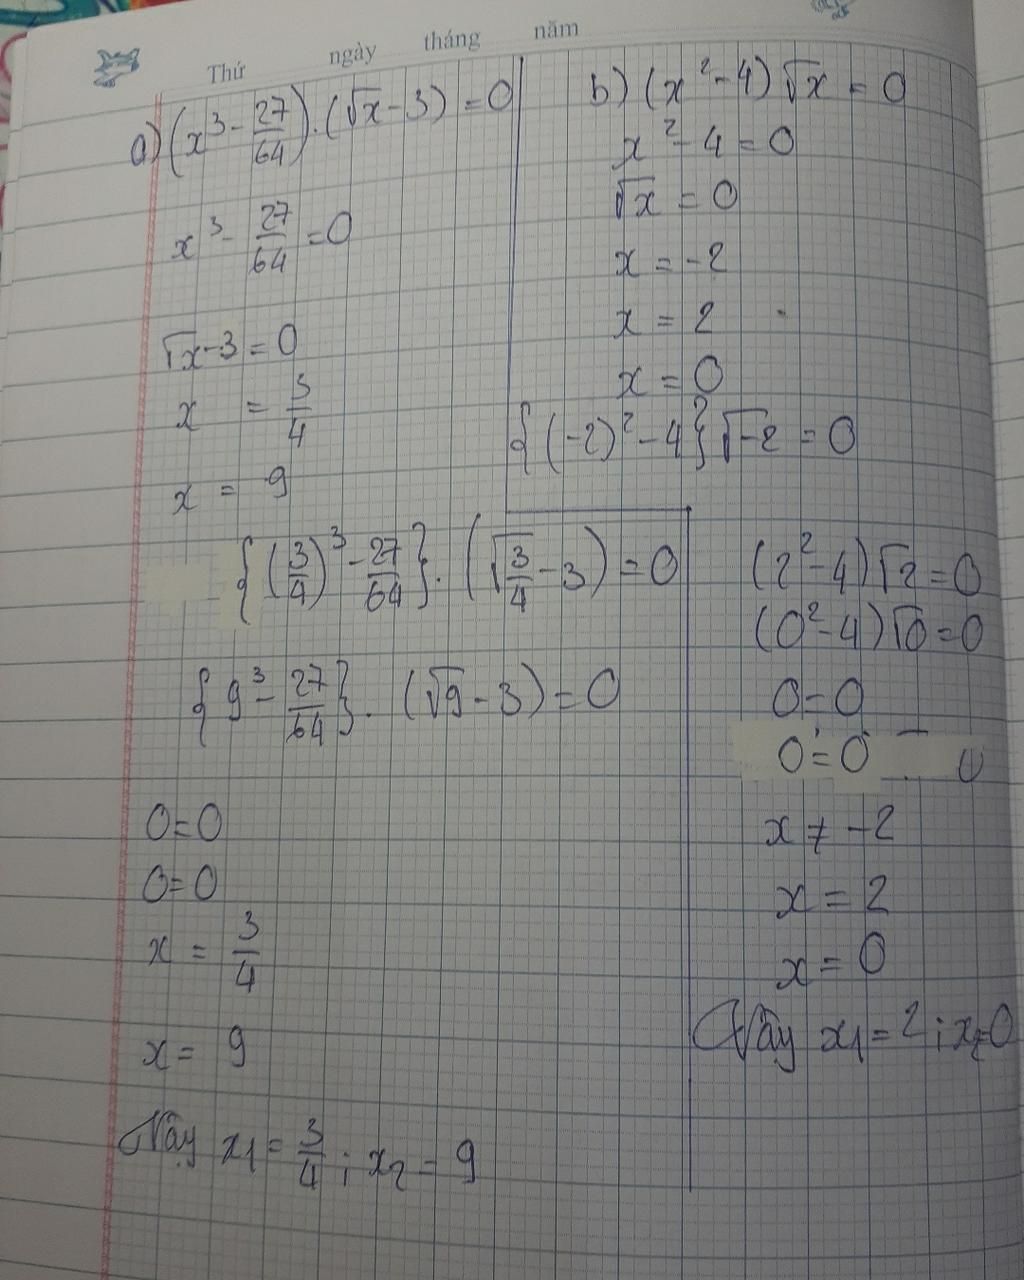 Thứ ngày tháng năm
a) (x³ - 27/64).(√x - 3) = 0
x³ - 27/64 = 0
√x - 3 = 0
x = 3/4
x = 9
{(3/4)³ - 27/64}.(√(3/4) - 3) = 0
{9³ - 27/64}.(√9 - 3) = 0
0 = 0
0 = 0
x = 3/4
x = 9
Vậy x₁ = 3/4 ; x₂ = 9
b) (x² - 4)√x = 0
x² - 4 = 0
√x = 0
x = -2
x = 2
x = 0
{(-2)² - 4}√-2 = 0
(2² - 4)√2 = 0
(0² - 4)√0 = 0
0 = 0
0 = 0
x ≠ -2
x = 2
x = 0
Vậy x₁ = 2 ; x₂ = 0